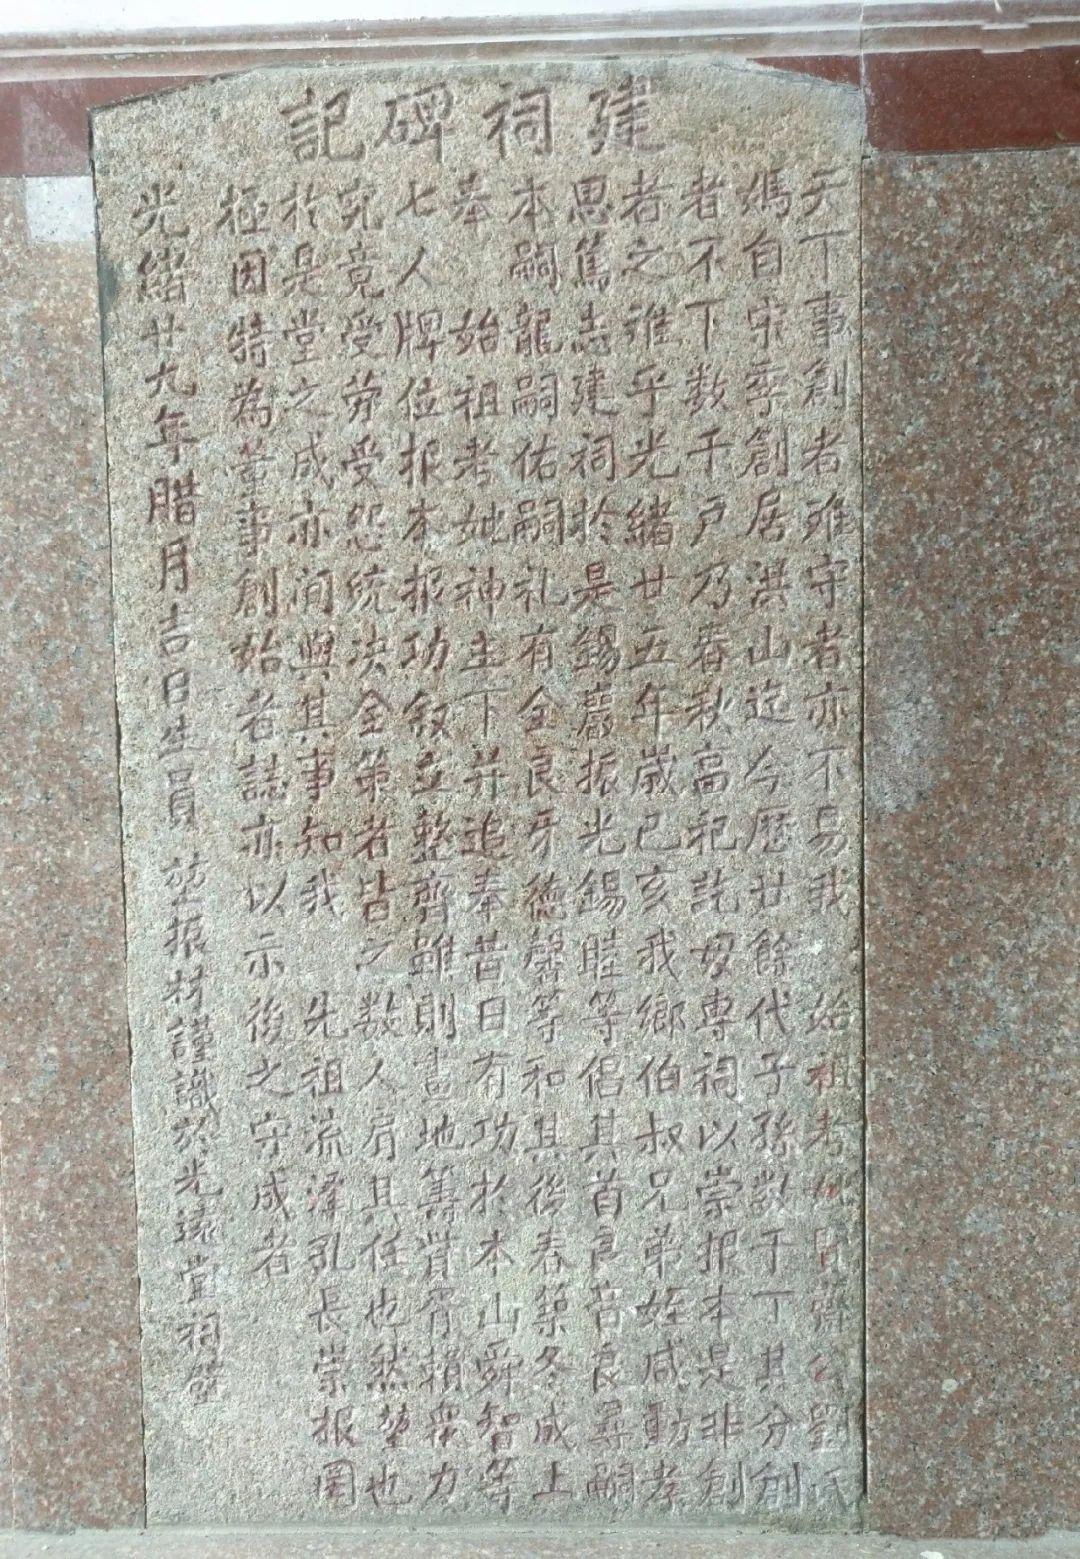 建祠碑記
天下事創者难守者亦不易我 始祖考妣 齋公劉氏
媽自宋季創居洪山迄今歷廿餘代子孫数千丁其分創
者不下数千户乃春秋高祀詑毋專祠以崇报本是非創
者之难乎光緒廿五年歲己亥我鄉伯叔兄弟姪咸動孝
思篤志建祠於是錫慶振光錫睦等倡其首良音良尋嗣
本嗣龍嗣佑嗣礼有全良牙德馨等和其後春築冬成上
奉 始祖考妣神主下并追奉昔日有功於本山舜智等
七人牌位报本报功叙立整齊雖則畫地籌貲胥賴衆力
究竟受劳受怨统决全策者皆之数人肩其任也然堃也
於是堂之成亦间與其事知我 先祖流澤孔長崇报罔
極因特為董事創始者誌亦以示後之守成者
光緒廿九年腊月吉日生員 堃振材謹識於光遠堂祠壁